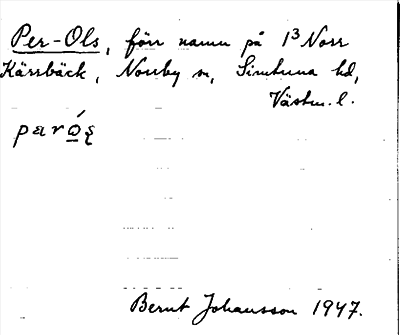 Per-Ols, förr namn på 1³ Norr
Kärrbäck, Norrby sn, Simtuna hd,
Västm. l.
Bernt Johansson 1947.